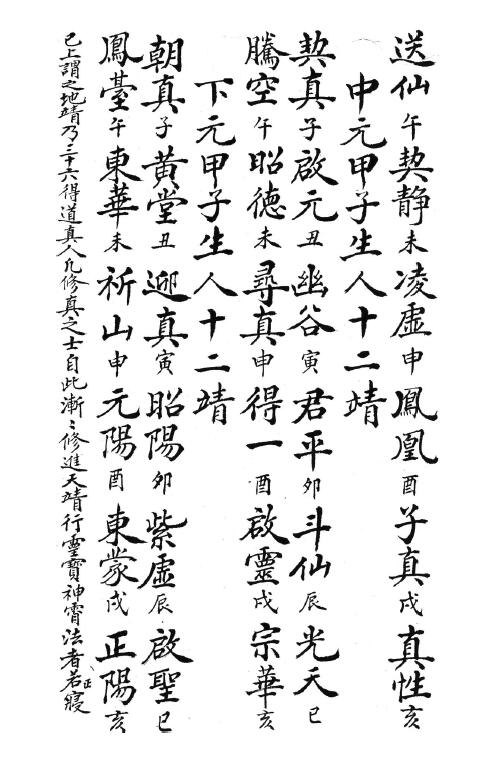 送仙午契静未凌虛申鳳凰酉子真戌真性亥
中元甲子生人十二靖
契真子啟元丑幽谷寅君平卯斗仙辰光天巳
騰空午昭德未尋真申得一酉啟靈戌宗華亥
下元甲子生人十二靖
朝真子黃堂丑迎真寅昭陽卯紫虛辰啟聖巳
鳳臺午東華未祈山申元陽酉東蒙戌正陽亥
已上謂之地靖乃三十六得道真人凢修真之士自此漸〻修進天靖行靈寶神霄法者若正寢